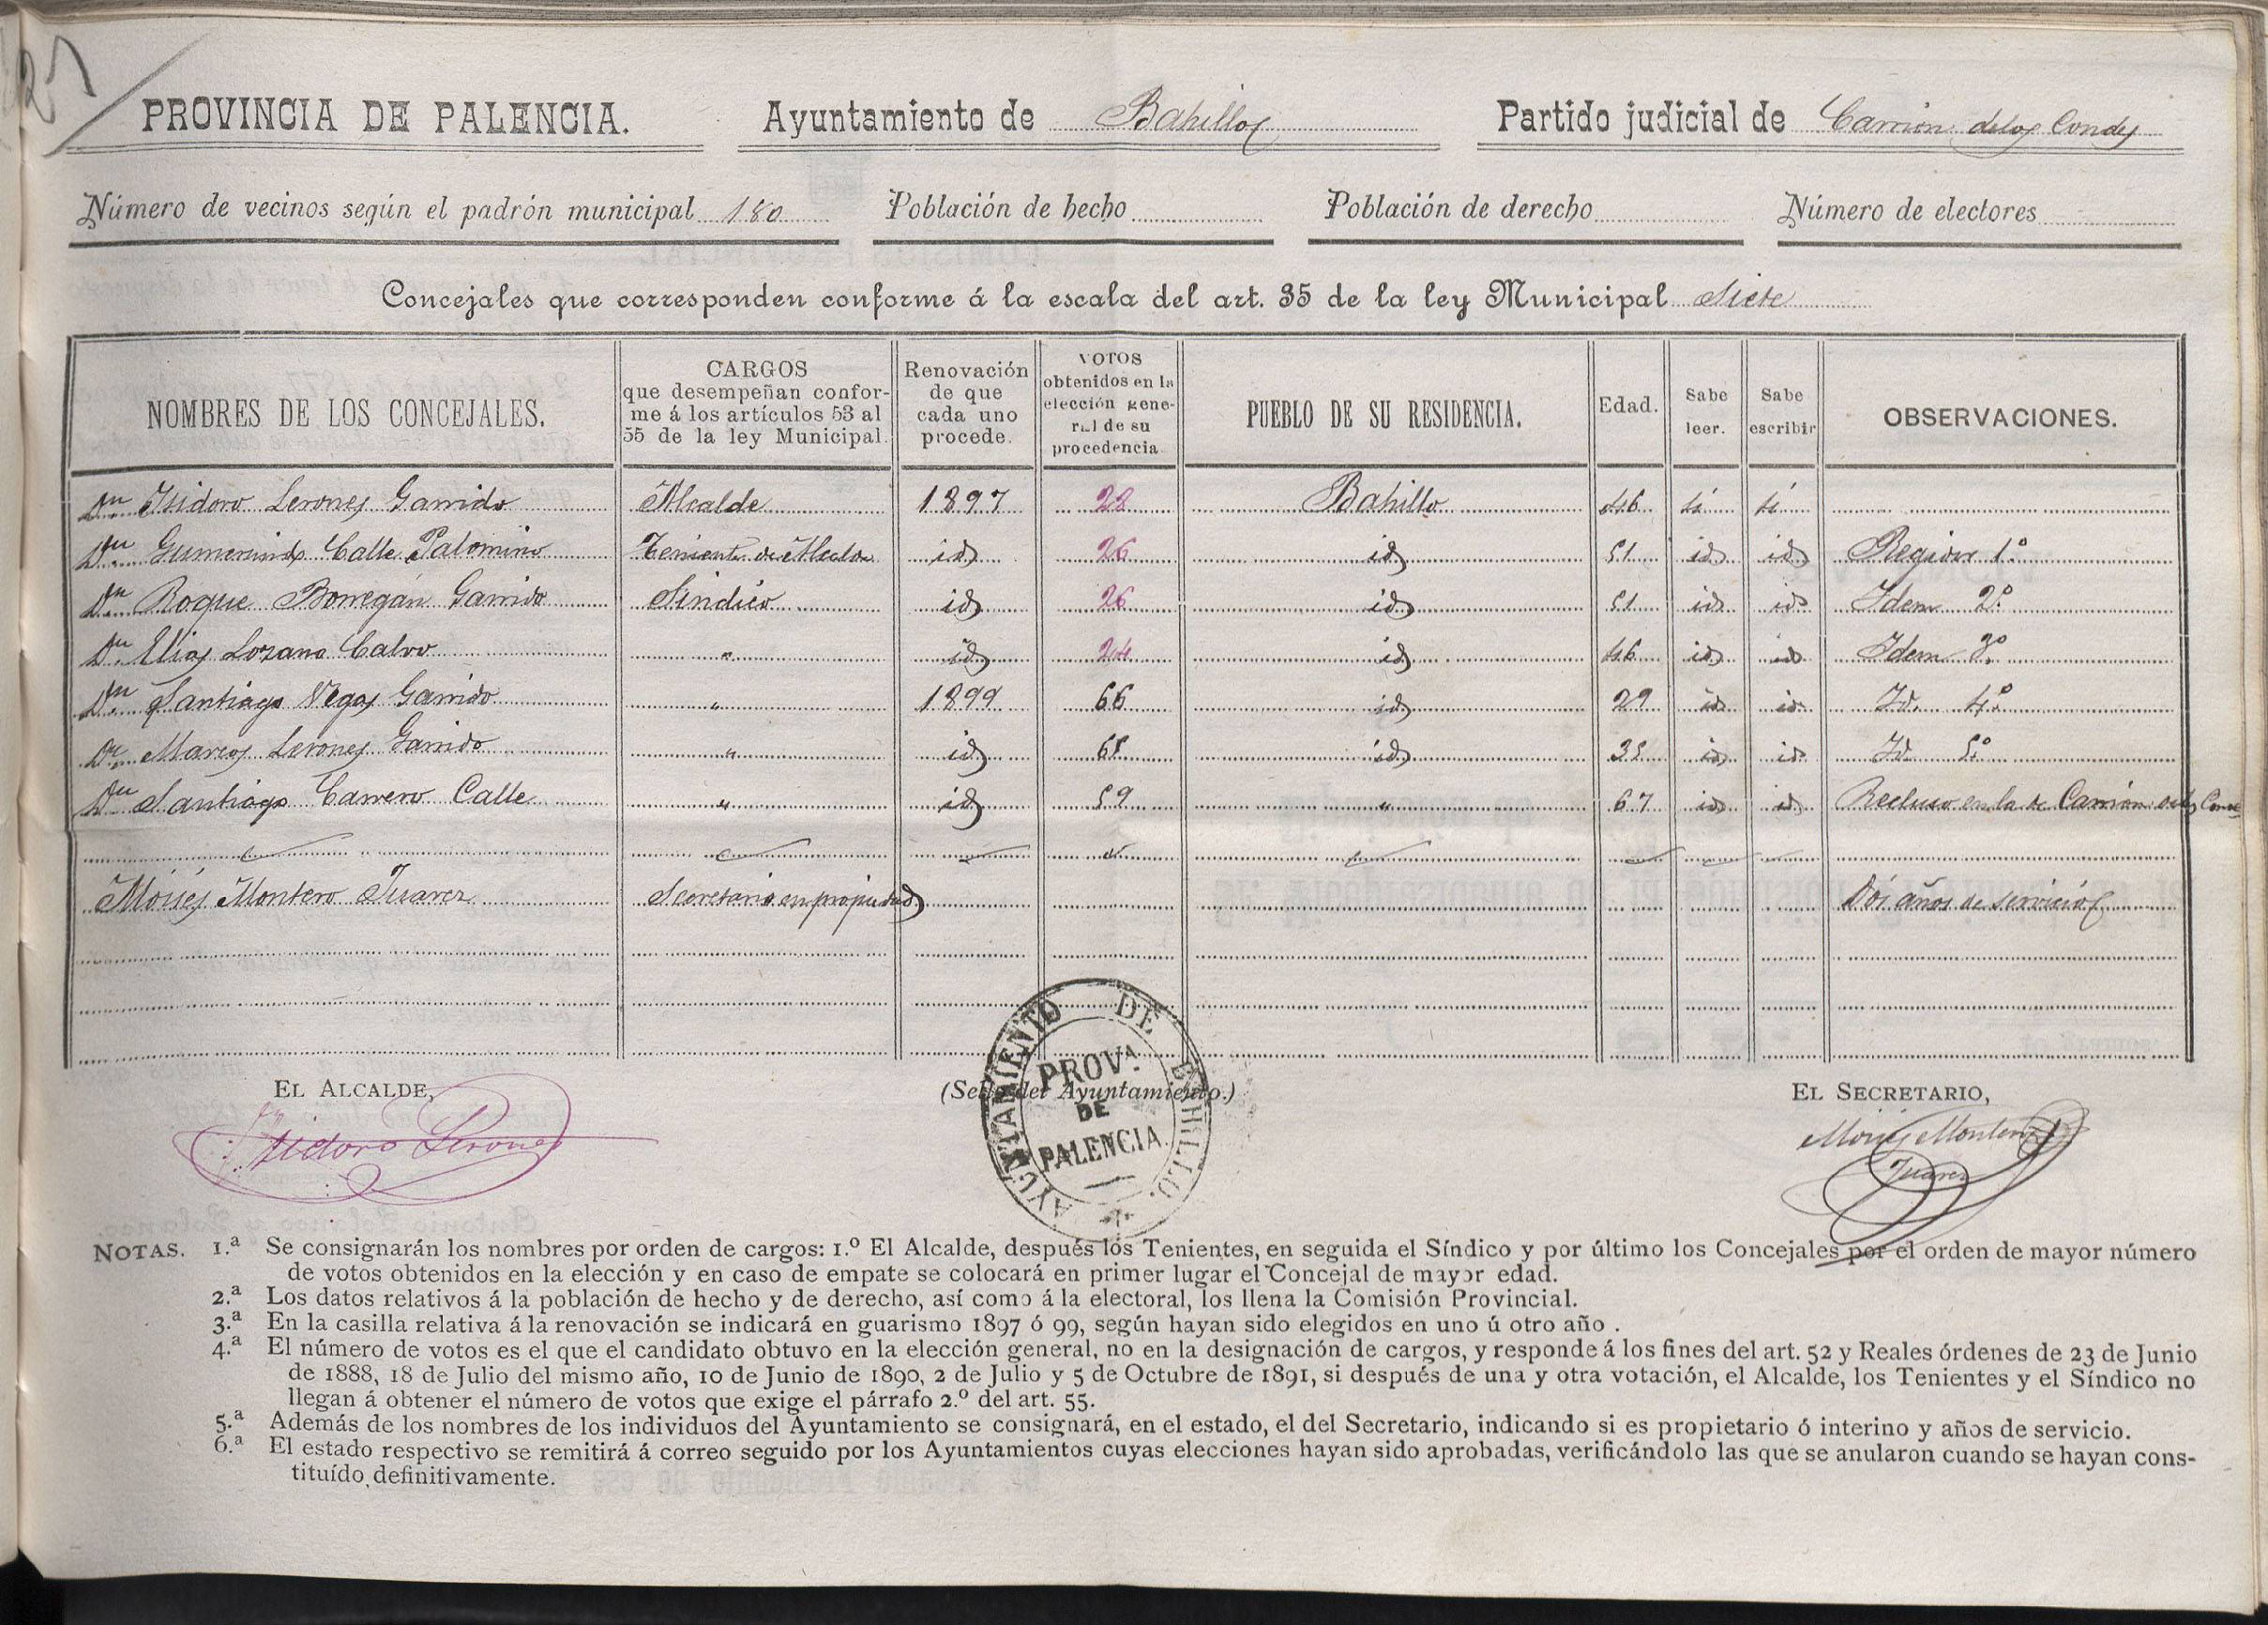 27
PROVINCIA DE PALENCIA. Ayuntamiento de Bahillos Partido judicial de Carrion delos Condes
Número de vecinos según el padrón municipal 180 Población de hecho Población de derecho Número de electores
Concejales que corresponden conforme á la escala del art. 35 de la ley Municipal Siete
NOMBRES DE LOS CONCEJALES. CARGOS que desempeñan conforme á los artículos 53 al 55 de la ley Municipal. Renovación de que cada uno procede. VOTOS obtenidos en la elección general de su procedencia PUEBLO DE SU RESIDENCIA. Edad. Sabe leer. Sabe escribir OBSERVACIONES.
Dn Isidoro Lerones Garrido Alcalde 1897 28 Bahillo 46 sí sí
Dn Gumersindo Calle Palomino Teniente de Alcalde id 26 id 51 id id Regidor 1.º
Dn Roque Borregán Garrido Sindico id 26 id 51 id id Idem 2º
Dn Elias Lozano Calvo " id 24 id 46 id id Idem 3º
Dn Santiago Vegas Garrido " 1899 66 id 29 id id Id. 4º
Dn Marcos Lerones Garrido " id 65 id 35 id id Id. 5º
Dn Santiago Carrero Calle " id 59 " 67 id id Recluso en la de Carrión
Moisés Montero Juarez Secretario en propiedad Dos años de servicios
EL ALCALDE, (Sello del Ayuntamiento.) EL SECRETARIO,
Isidoro Lerones
AYUNTAMIENTO DE BAHILLO.
PROVA.
DE
PALENCIA
Moisés Montero
Juarez
NOTAS. 1.ª Se consignarán los nombres por orden de cargos: 1.º El Alcalde, después los Tenientes, en seguida el Síndico y por último los Concejales por el orden de mayor número
de votos obtenidos en la elección y en caso de empate se colocará en primer lugar el Concejal de mayor edad.
2.ª Los datos relativos á la población de hecho y de derecho, así como á la electoral, los llena la Comisión Provincial.
3.ª En la casilla relativa á la renovación se indicará en guarismo 1897 ó 99, según hayan sido elegidos en uno ú otro año .
4.ª El número de votos es el que el candidato obtuvo en la elección general, no en la designación de cargos, y responde á los fines del art. 52 y Reales órdenes de 23 de Junio
de 1888, 18 de Julio del mismo año, 10 de Junio de 1890, 2 de Julio y 5 de Octubre de 1891, si después de una y otra votación, el Alcalde, los Tenientes y el Síndico no
llegan á obtener el número de votos que exige el párrafo 2.º del art. 55.
5.ª Además de los nombres de los individuos del Ayuntamiento se consignará, en el estado, el del Secretario, indicando si es propietario ó interino y años de servicio.
6.ª El estado respectivo se remitirá á correo seguido por los Ayuntamientos cuyas elecciones hayan sido aprobadas, verificándolo las que se anularon cuando se hayan cons-
tituído definitivamente.